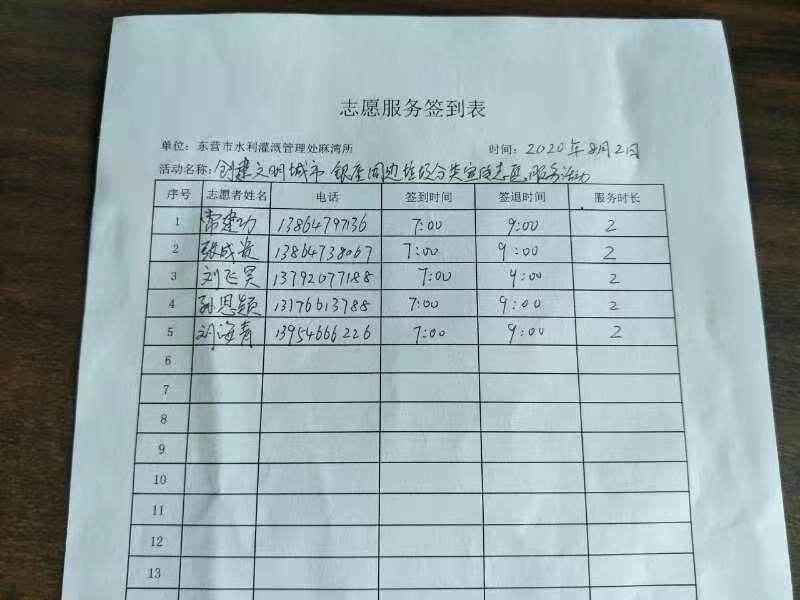 志愿服务签到表
单位：东营市水利灌溉管理处麻湾所 时间：2020年8月2日
活动名称：创建文明城市 银座周边垃圾分类宣传志愿服务活动
序号 志愿者姓名 电话 签到时间 签退时间 服务时长
1 常建功 13864797136 7:00 9:00 2
2 张成 13864738067 7:00 9:00 2
3 刘飞昊 13792077188 7:00 9:00 2
4 孙思颖 13176613788 7:00 9:00 2
5 刘海青 13954666226 7:00 9:00 2
6
7
8
9
10
11
12
13